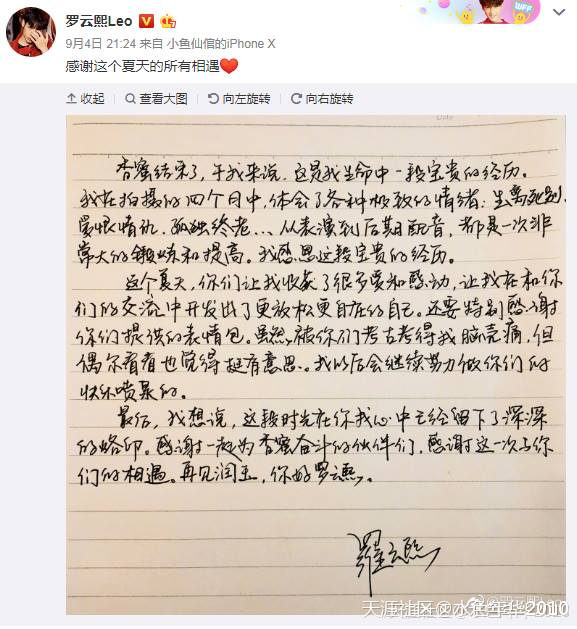 罗云熙Leo
9月4日 21:24 来自 小鱼仙倌的iPhone X
感谢这个夏天的所有相遇
收起 查看大图 向左旋转 向右旋转
Date
香蜜结束了,于我来说,这是我生命中一段宝贵的经历。
我在拍摄的四个月中,体会了各种极致的情绪:生离死别,
爱恨情仇,孤独终老...从表演到后期配音,都是一次非
常大的锻炼和提高。我感恩这段宝贵的经历。
这个夏天,你们让我收获了很多爱和感动,让我在和你
们的交流中开发出了更放松更自在的自己。还要特别感谢
你们提供的表情包。虽然被你们考古考得我脑壳痛,但
偶尔看看也觉得挺有意思。我以后会继续努力做你们的
快乐喷泉的。
最后,我想说,这段时光在你我心中已经留下了深深
的烙印。感谢一起为香蜜奋斗的伙伴们,感谢这一次与你
们的相遇。再见润玉,你好罗云熙。
羅云熙
天涯社区@水
2010